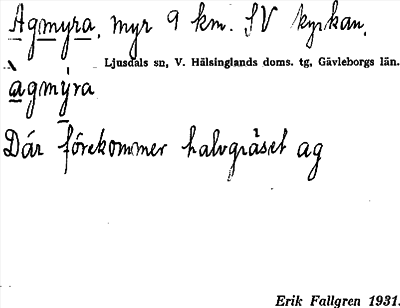 Agmyra, myr 9 km. SV kyrkan.
Ljusdals sn, V. Hälsinglands doms. tg, Gävleborgs län.
àgmýra
Där förekommer halvgräset ag
Erik Fallgren 1931.